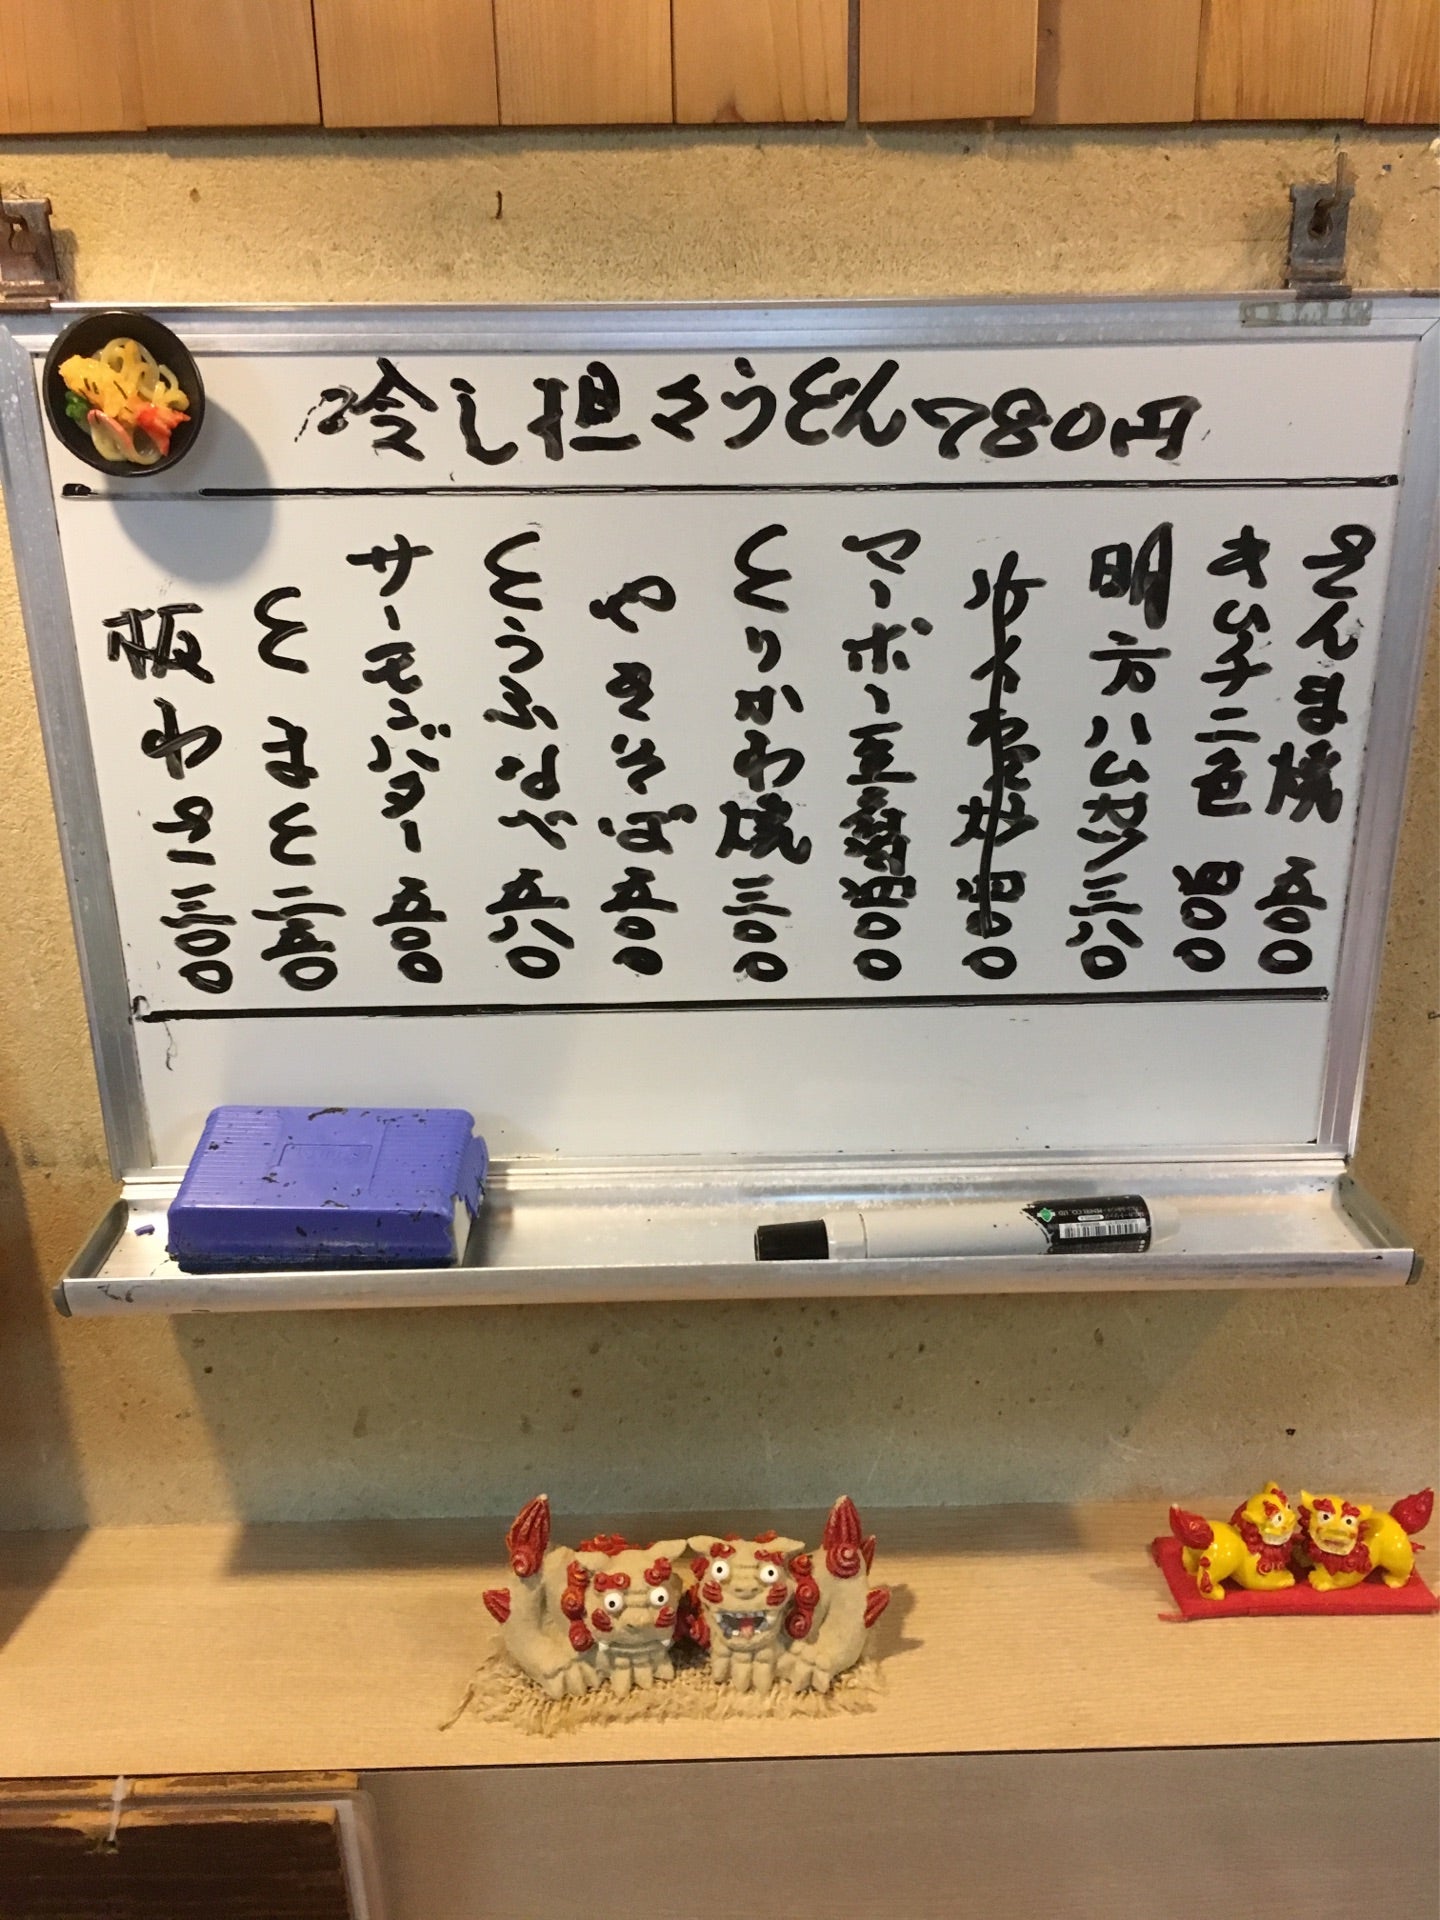 冷し担々うどん780円
さんま焼 五〇〇
きムチ二色 四〇〇
明方ハムカツ 三八〇
四〇〇
マーボー豆腐 四〇〇
とりかわ焼 三〇〇
やきそば 五〇〇
とうふなべ 五八〇
サーモンバター 五〇〇
とまと 二五〇
板わさ 三〇〇